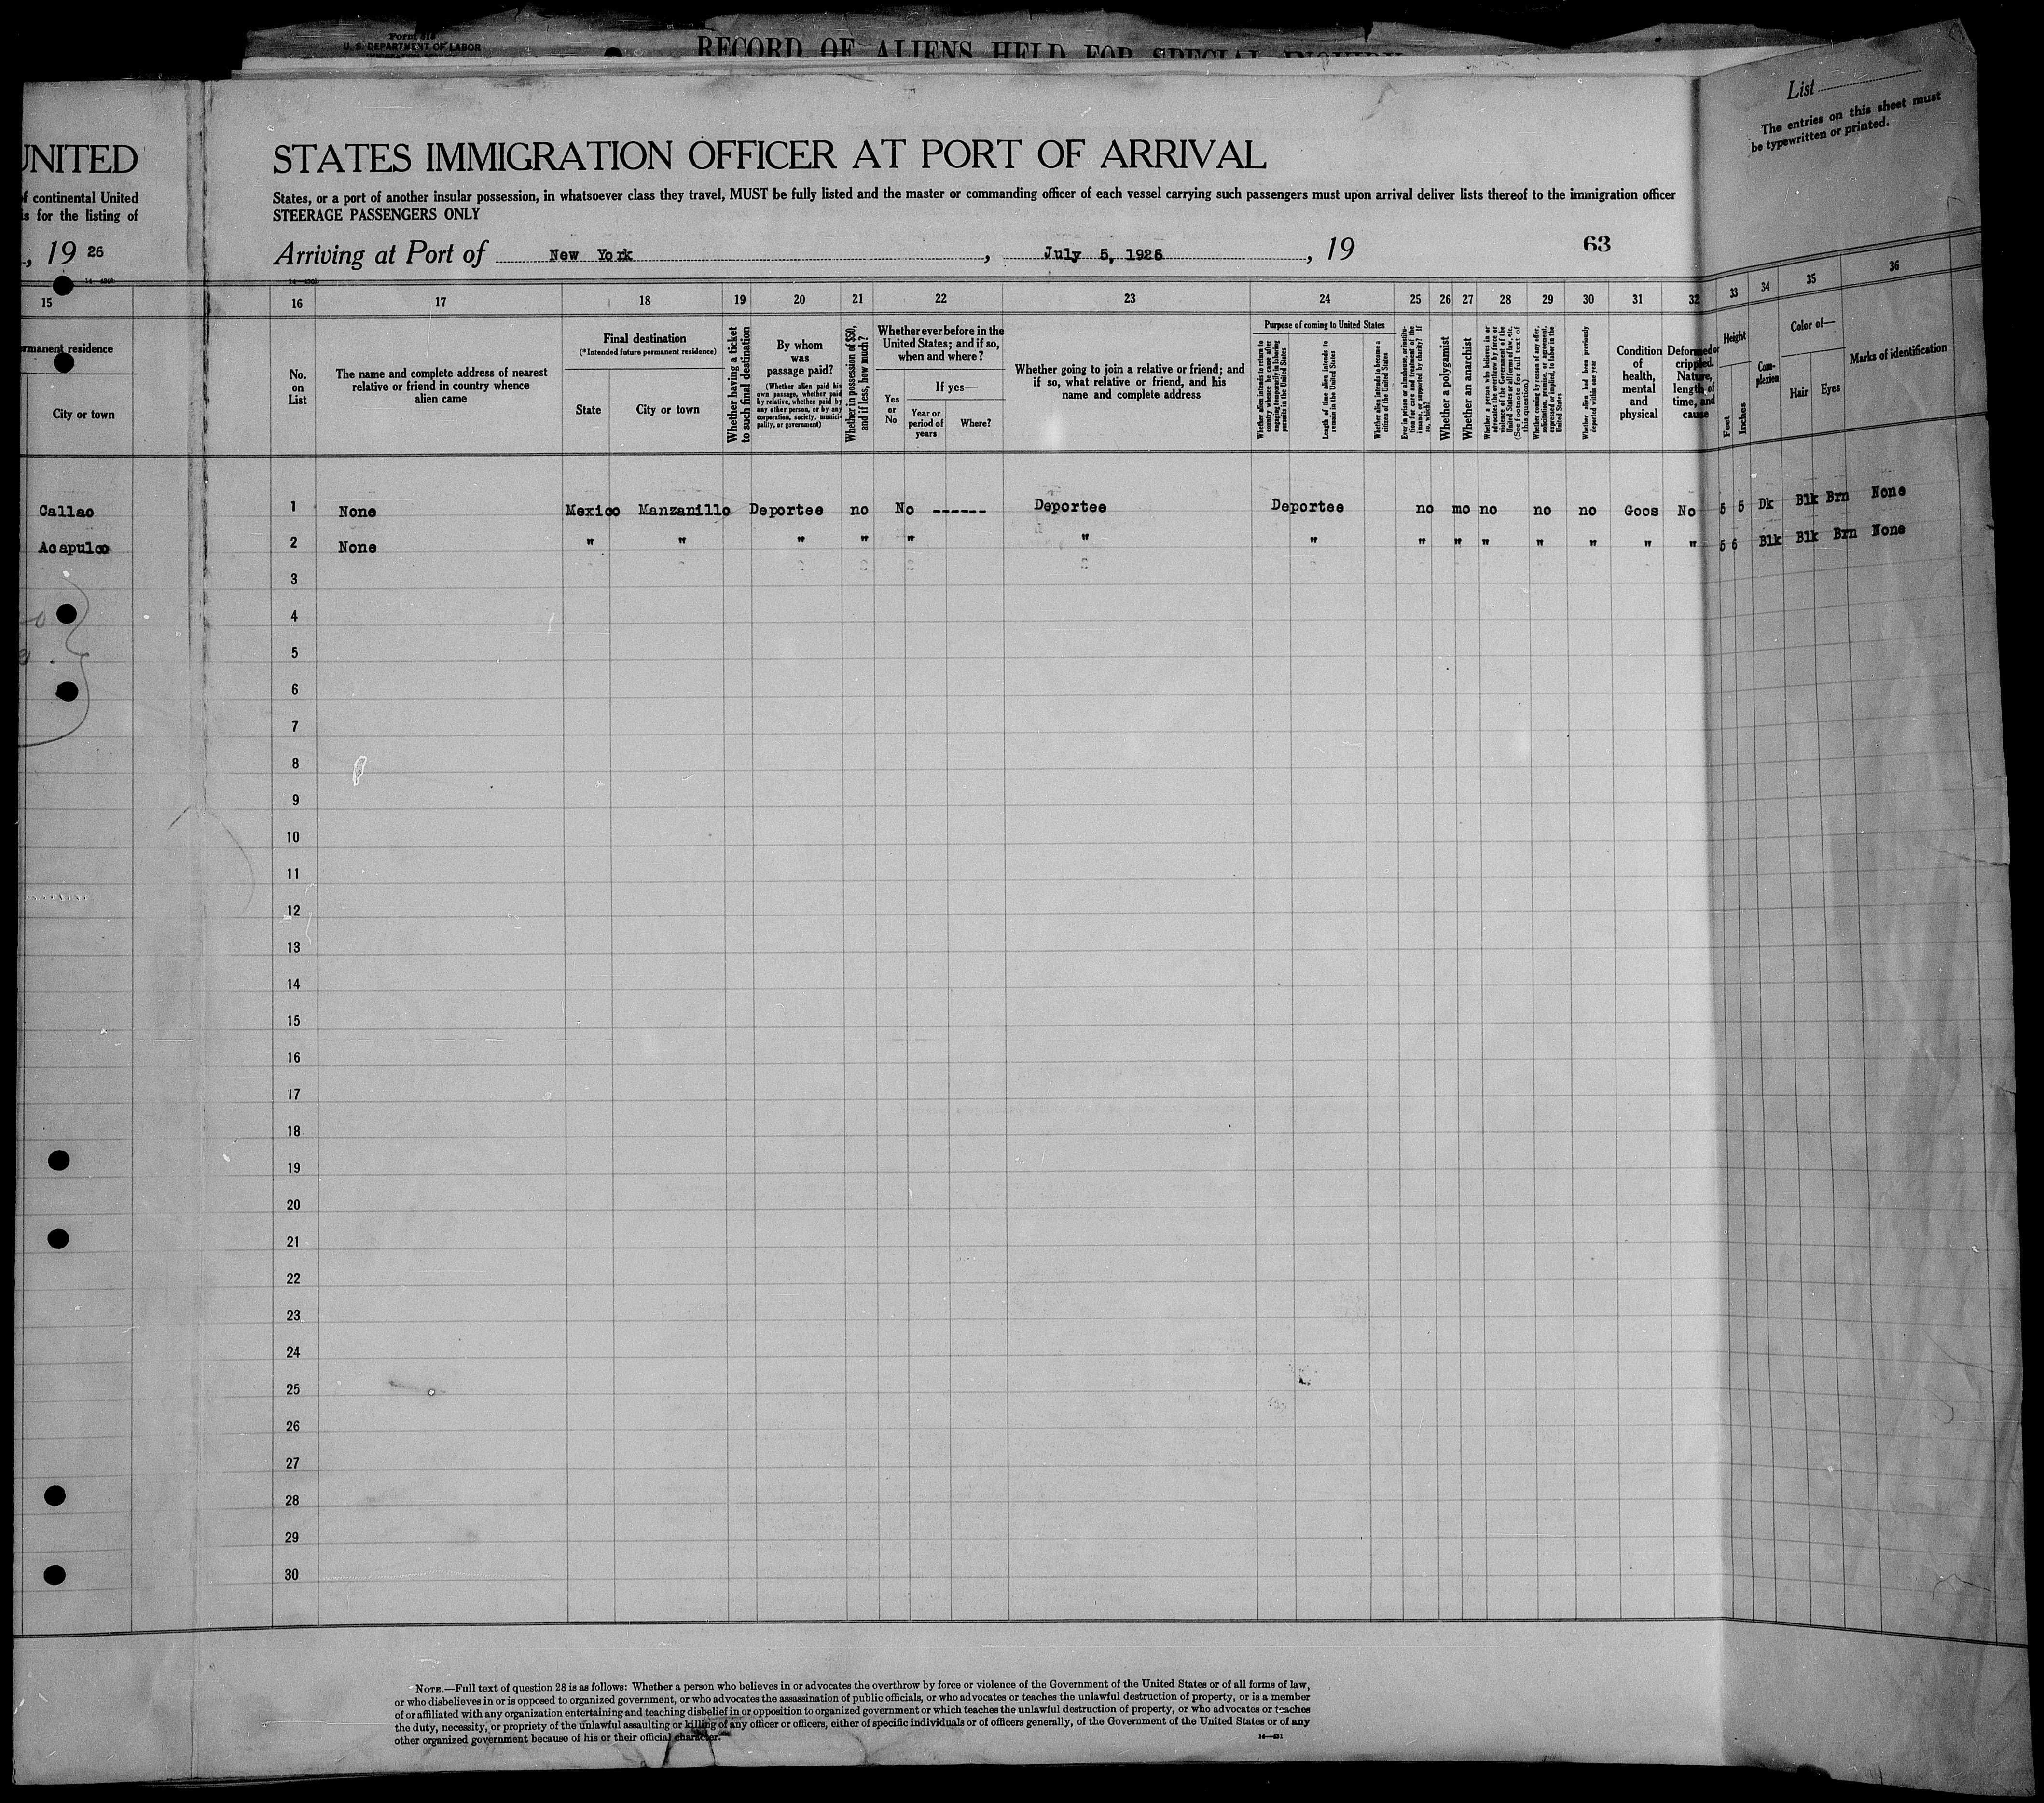 Form 618
U. S. DEPARTMENT OF LABOR
RECORD OF ALIENS HELD FOR SPECIAL INQUIRY
List
The entries on this sheet must
be typewritten or printed.
UNITED
STATES IMMIGRATION OFFICER AT PORT OF ARRIVAL
of continental United
is for the listing of
States, or a port of another insular possession, in whatsoever class they travel, MUST be fully listed and the master or commanding officer of each vessel carrying such passengers must upon arrival deliver lists thereof to the immigration officer
STEERAGE PASSENGERS ONLY
, 19 26
Arriving at Port of New York, July 5, 1926, 19
63
15 16 17 18 19 20 21 22 23 24 25 26 27 28 29 30 31 32 33 34 35 36
rmanent residence
City or town
No.
on
List
The name and complete address of nearest
relative or friend in country whence
alien came
Final destination
(*Intended future permanent residence)
State
City or town
Whether having a ticket
to such final destination
By whom
was
passage paid?
(Whether alien paid his
own passage, whether paid
by relative, whether paid by
any other person, or by any
corporation, society, munici-
pality, or government)
Whether in possession of $50,
and if less, how much?
Whether ever before in the
United States; and if so,
when and where?
Yes
or
No
If yes—
Year or
period of
years
Where?
Whether going to join a relative or friend; and
if so, what relative or friend, and his
name and complete address
Purpose of coming to United States
Whether alien intends to return to
country whence he came after
engaging temporarily in laboring
pursuits in the United States
Length of time alien intends to
remain in the United States
Whether alien intends to become a
citizen of the United States
Ever in prison or almshouse, or institu-
tion for care and treatment of the
insane, or supported by charity? If
so, which?
Whether a polygamist
Whether an anarchist
Whether a person who believes in or
advocates the overthrow by force or
violence of the Government of the
United States or all forms of law, etc.
(See footnote for full text of
this question)
Whether coming by reason of any offer,
solicitation, promise, or agreement,
expressed or implied, to labor in the
United States
Whether alien had been previously
deported within one year
Condition
of
health,
mental
and
physical
Deformed or
crippled.
Nature,
length of
time, and
cause
Height
Feet
Inches
Com-
plexion
Color of—
Hair
Eyes
Marks of identification
Callao 1 None Mexico Manzanillo Deportee no No ------ Deportee Deportee no mo no no no Goos No 5 5 Dk Blk Brn None
Acapulco 2 None " " " " " " " " " " " " " " 5 6 Blk Blk Brn None
3
4
5
6
7
8
9
10
11
12
13
14
15
16
17
18
19
20
21
22
23
24
25
26
27
28
29
30
NOTE.—Full text of question 28 is as follows: Whether a person who believes in or advocates the overthrow by force or violence of the Government of the United States or of all forms of law,
or who disbelieves in or is opposed to organized government, or who advocates the assassination of public officials, or who advocates or teaches the unlawful destruction of property, or is a member
of or affiliated with any organization entertaining and teaching disbelief in or opposition to organized government or which teaches the unlawful destruction of property, or who advocates or teaches
the duty, necessity, or propriety of the unlawful assaulting or killing of any officer or officers, either of specific individuals or of officers generally, of the Government of the United States or of any
other organized government because of his or their official character.
14—431